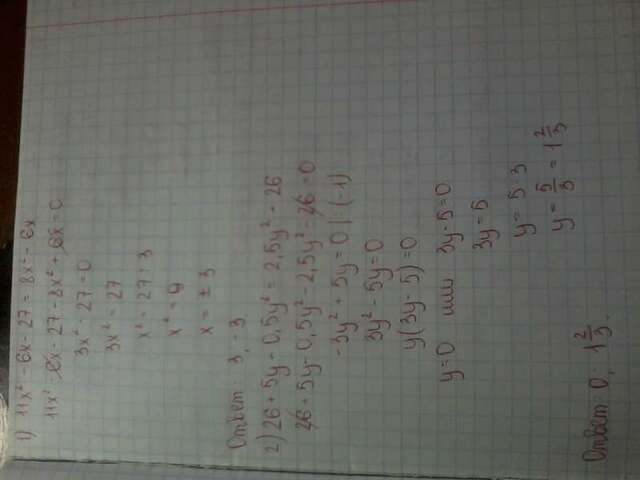 1) 11x² - 6x - 27 = 8x² - 6x
11x² - 6x - 27 - 8x² + 6x = 0
3x² - 27 = 0
3x² = 27
x² = 27 : 3
x² = 9
x = ± 3
Ответ: 3, -3
2) 26 + 5y - 0,5y² = 2,5y² + 26
26 + 5y - 0,5y² - 2,5y² - 26 = 0
-3y² + 5y = 0 | : (-1)
3y² - 5y = 0
y(3y - 5) = 0
y = 0 или 3y - 5 = 0
3y = 5
y = 5 : 3
y = 5/3 = 1 2/3
Ответ: 0; 1 2/3.